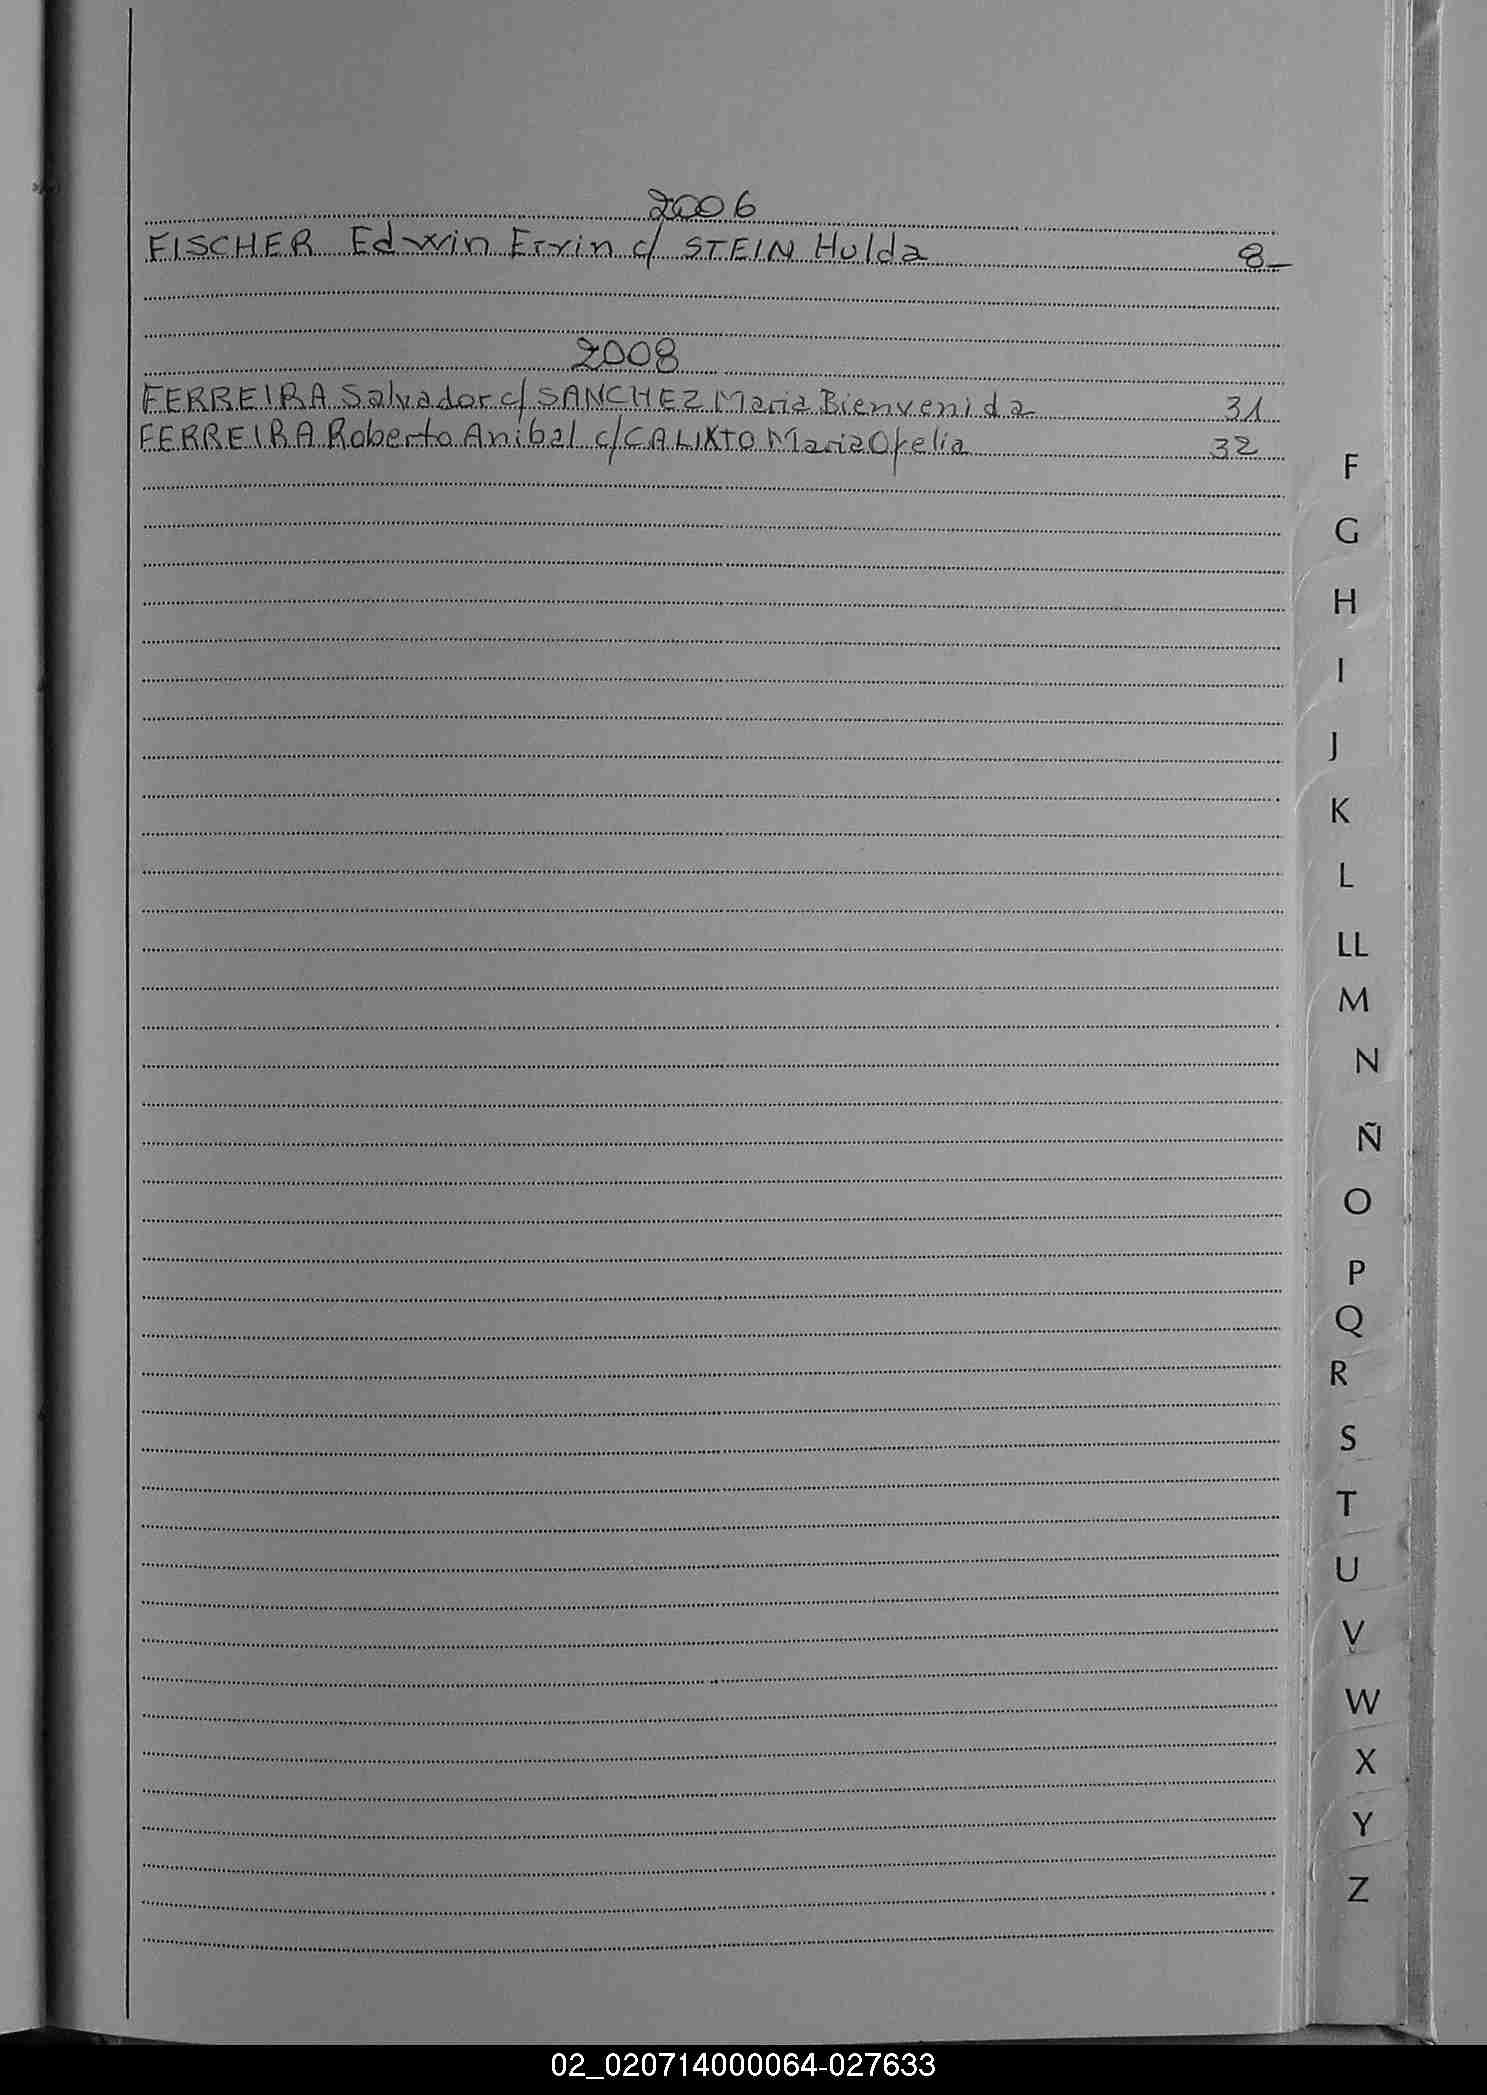 2006
FISCHER Edwin Ervin c/ STEIN Hulda 8-
2008
FERREIRA Salvador c/ SANCHEZ Maria Bienvenida 31
FERREIRA Roberto Anibal c/ CALIXTO Maria Ofelia 32
F
G
H
I
J
K
L
LL
M
N
Ñ
O
P
Q
R
S
T
U
V
W
X
Y
Z
02_020714000064-027633